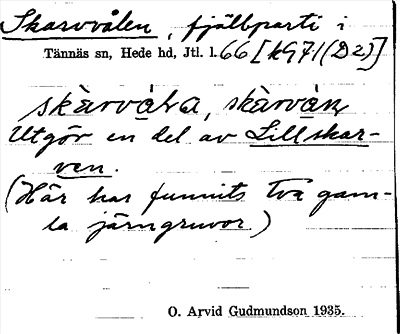 Skarvvålen, fjällparti i
Tännäs sn, Hede hd, Jtl. l. 66 [k97 l (D2)]
skàrvɷ̀la, skàrvɷ̀n,
Utgör en del av Lillskar-
ven.
(Här har funnits två gam-
la järngruvor.)
O. Arvid Gudmundson 1935.